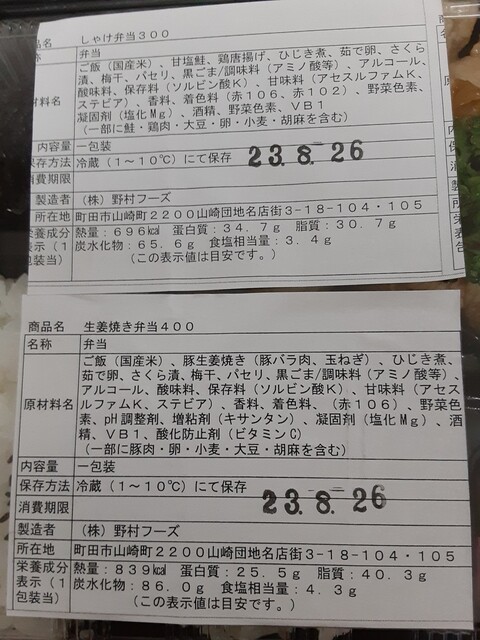 品名 しゃけ弁当３００
称 弁当
ご飯（国産米）、甘塩鮭、鶏唐揚げ、ひじき煮、茹で卵、さくら
漬、梅干、パセリ、黒ごま/調味料（アミノ酸等）、アルコール、
酸味料、保存料（ソルビン酸Ｋ）、甘味料（アセスルファムＫ、
材料名 ステビア）、香料、着色料（赤１０６、赤１０２）、野菜色素、
凝固剤（塩化Ｍｇ）、酒精、野菜色素、ＶＢ１
（一部に鮭・鶏肉・大豆・卵・小麦・胡麻を含む）
内容量 一包装
保存方法 冷蔵（１～１０℃）にて保存 23.8.26
消費期限
製造者 （株）野村フーズ
所在地 町田市山崎町２２００山崎団地名店街３－１８－１０４・１０５
栄養成分 熱量：６９６㎉ 蛋白質：３４．７ｇ 脂質：３０．７ｇ
表示（１ 炭水化物：６５．６ｇ 食塩相当量：３．４ｇ
包装当） （この表示値は目安です。）
商品名 生姜焼き弁当４００
名称 弁当
ご飯（国産米）、豚生姜焼き（豚バラ肉、玉ねぎ）、ひじき煮、
茹で卵、さくら漬、梅干、パセリ、黒ごま/調味料（アミノ酸等）、
アルコール、酸味料、保存料（ソルビン酸Ｋ）、甘味料（アセス
原材料名 ルファムＫ、ステビア）、香料、着色料、（赤１０６）、野菜色
素、ｐＨ調整剤、増粘剤（キサンタン）、凝固剤（塩化Ｍｇ）、酒
精、ＶＢ１、酸化防止剤（ビタミンＣ）
（一部に豚肉・卵・小麦・大豆・胡麻を含む）
内容量 一包装
保存方法 冷蔵（１～１０℃）にて保存
消費期限 23.8.26
製造者 （株）野村フーズ
所在地 町田市山崎町２２００山崎団地名店街３－１８－１０４・１０５
栄養成分 熱量：８３９㎉ 蛋白質：２５．５ｇ 脂質：４０．３ｇ
表示（１ 炭水化物：８６．０ｇ 食塩相当量：４．３ｇ
包装当） （この表示値は目安です。）